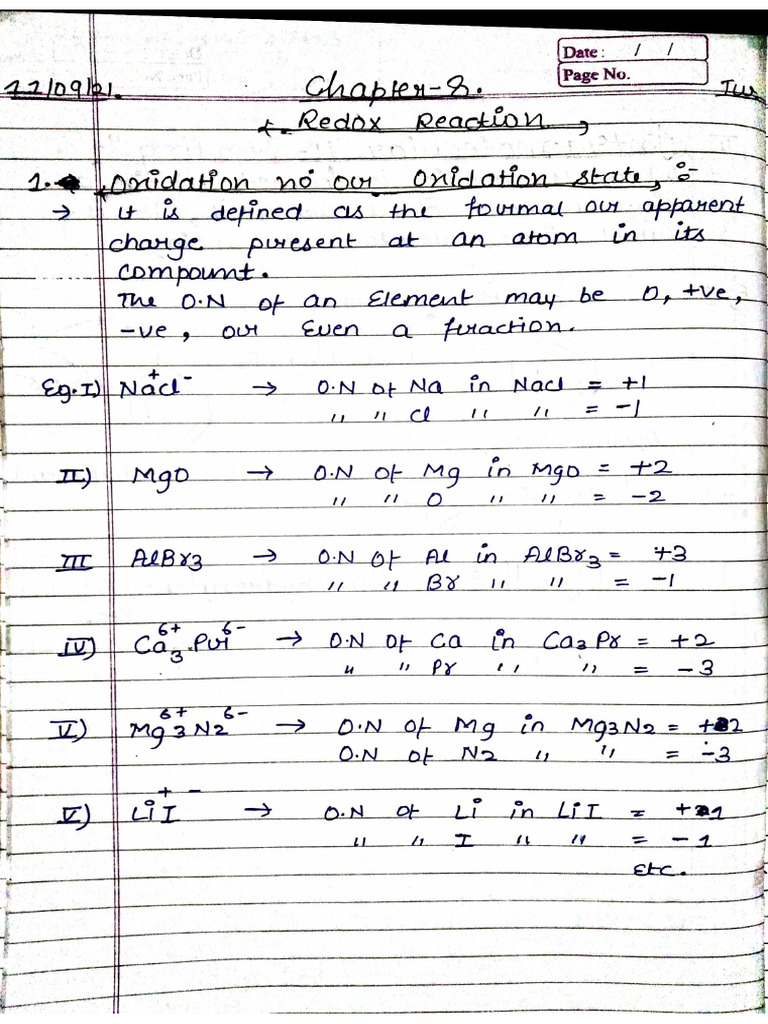 Date: / /
Page No.
Chapter-8.
Redox Reaction
1. Oxidation no or Oxidation state, :-
→ it is defined as the formal or apparent
charge present at an atom in its
compount.
The O.N of an Element may be 0, +ve,
-ve, or Even a fraction.
Eg. I) Na+Cl- → O.N of Na in Nacl = +1
,, ,, Cl ,, ,, = -1
II) MgO → O.N of Mg in MgO = +2
,, ,, O ,, ,, = -2
III AlBr3 → O.N of Al in AlBr3 = +3
,, ,, Br ,, ,, = -1
IV) Ca3 6+ . 6- → O.N of Ca in Ca3Pr = +2
,, ,, Pr ,, ,, = -3
V) Mg3 6+ N2 6- → O.N of Mg in Mg3N2 = +2
O.N of N2 ,, ,, = -3
V) Li+ I- → O.N of Li in LiI = +1
,, ,, I ,, ,, = -1
Etc.